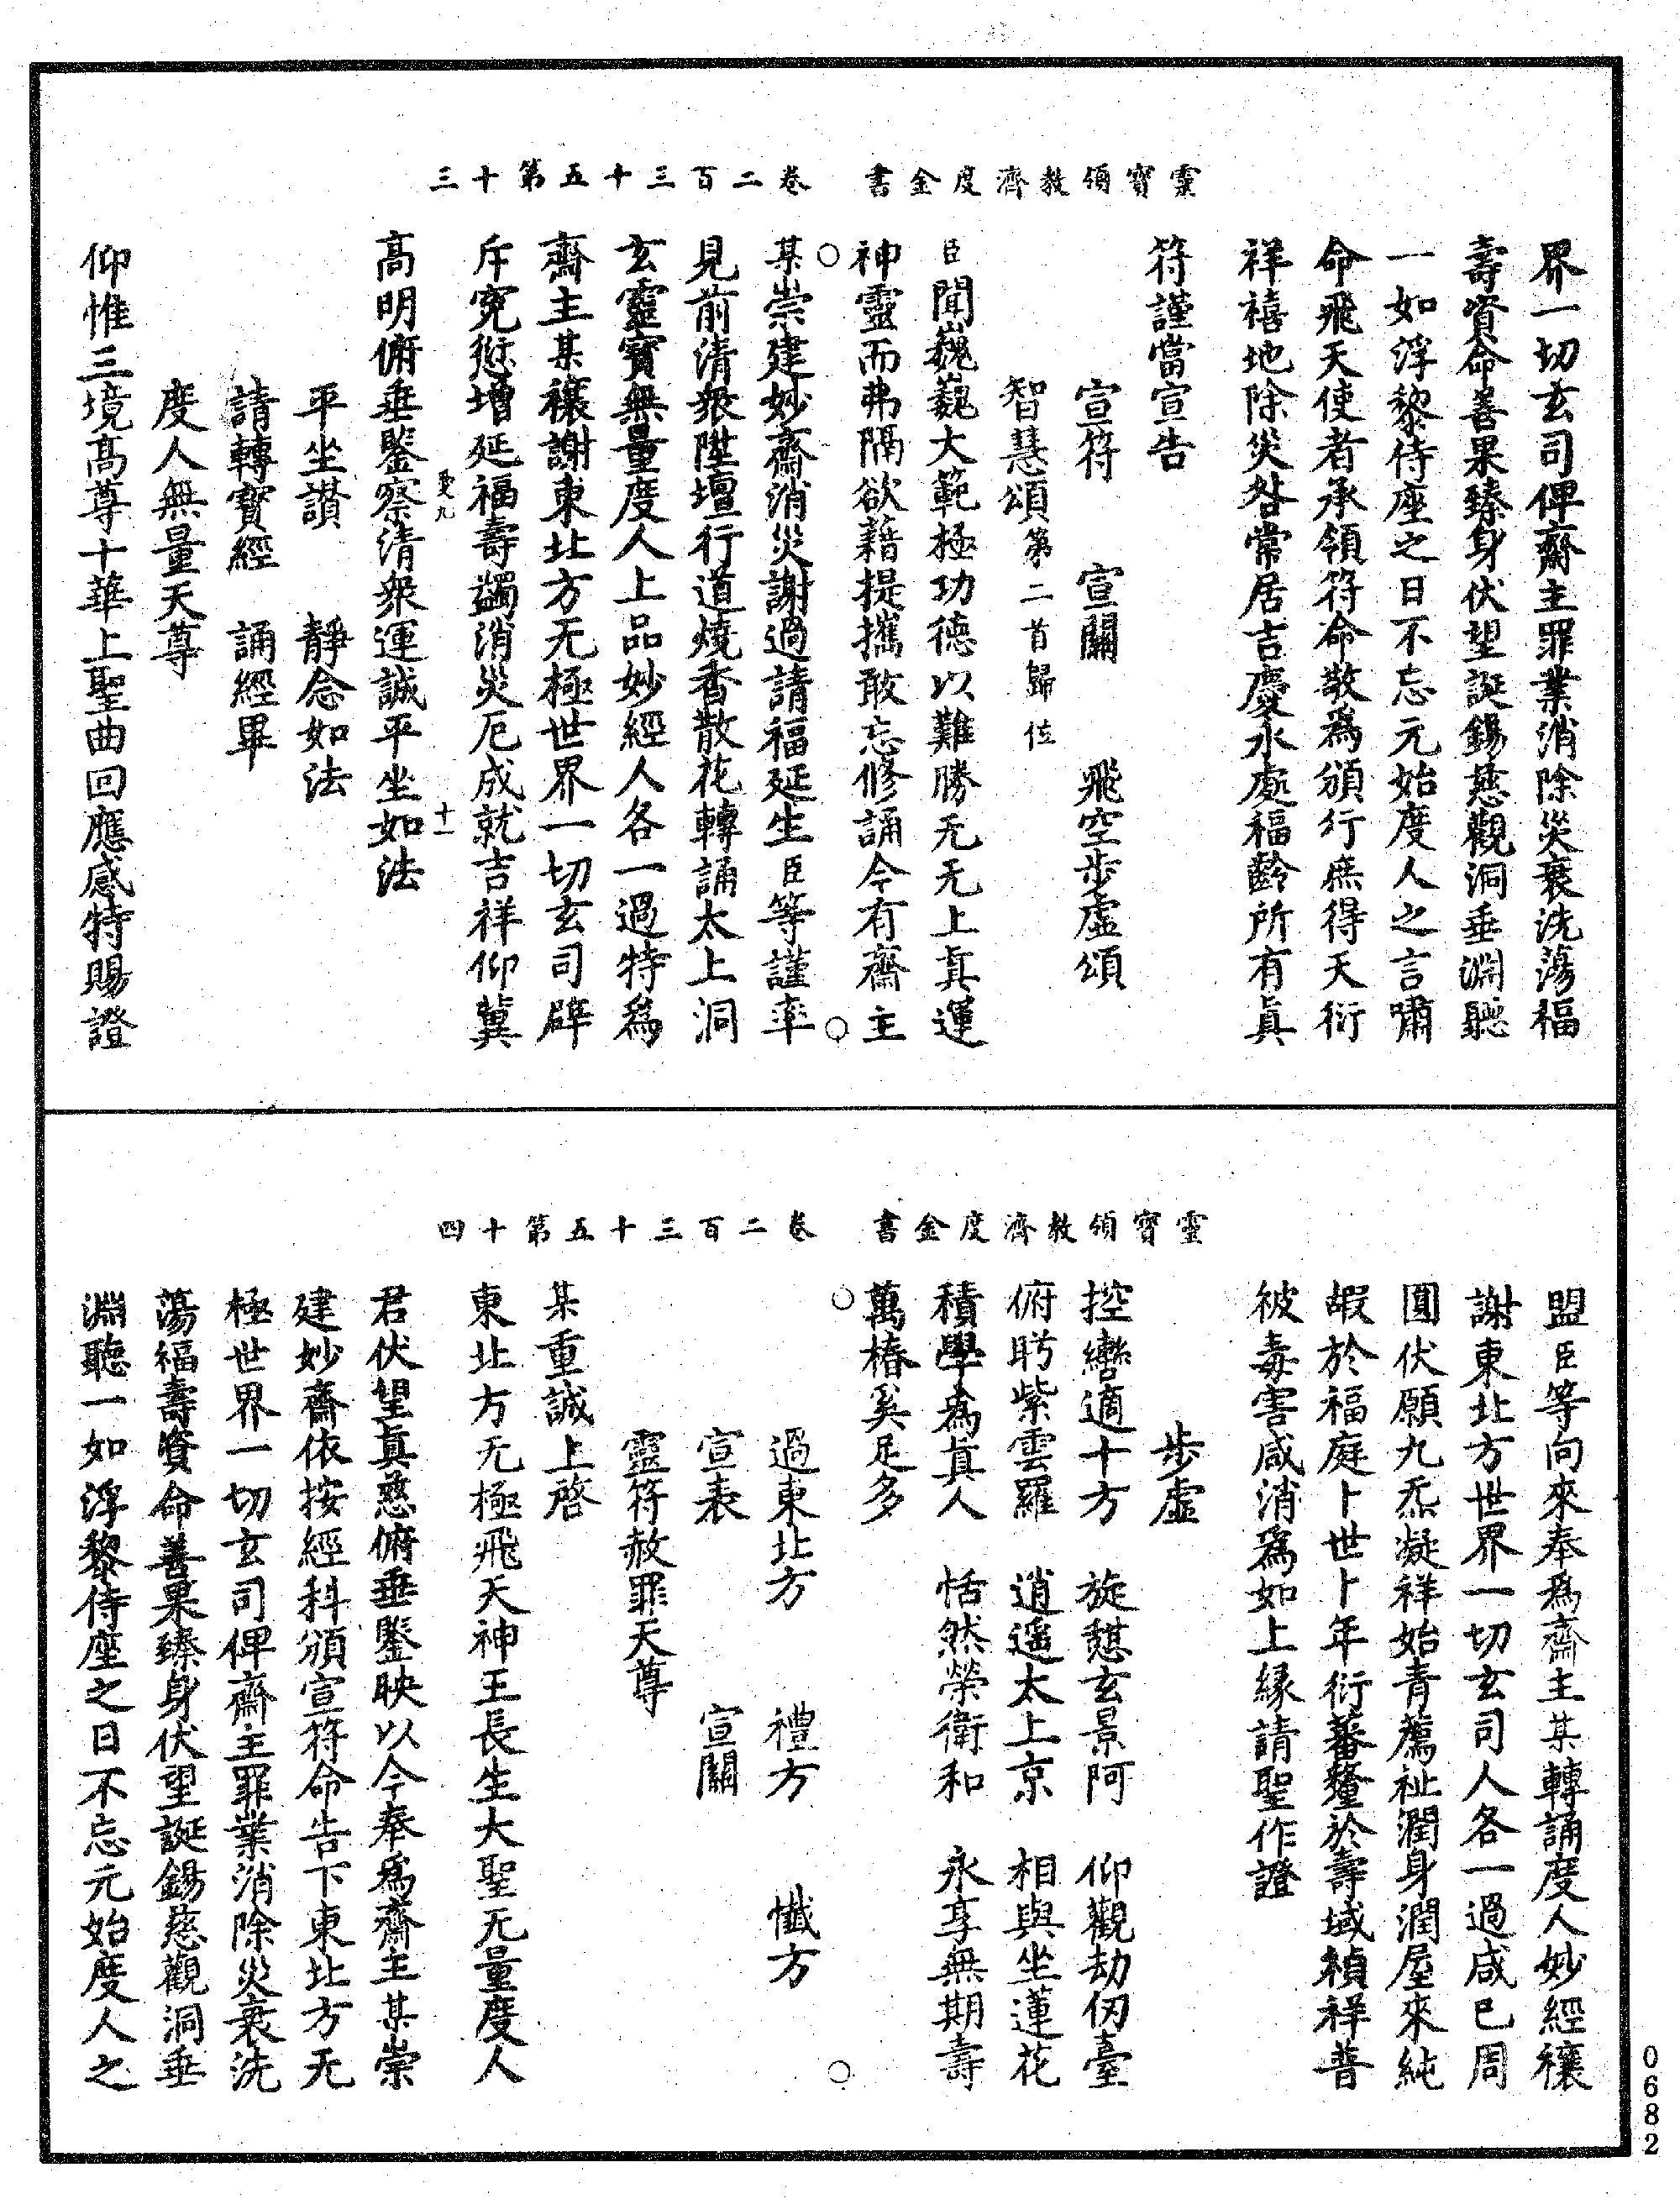 靈寶領教濟度金書　卷二百三十五第十三
界一切玄司俾齋主罪業消除災衰洗蕩福
壽資命善果臻身伏望誕錫慈觀洞垂淵聽
一如浮黎侍座之日不忘元始度人之言嘯
命飛天使者承領符命敬爲頒行庶得天衍
祥禧地除災咎常居吉慶永處福齡所有眞
符謹當宣告
宣符　宣關　飛空步虛頌
智慧頌第二首歸位
臣聞巍巍大範極功德以難勝无无上眞運
神靈而弗隔欲藉提攜敢忘修誦今有齋主
某崇建妙齋消災謝過請福延生臣等謹率
見前清衆陞壇行道燒香散花轉誦太上洞
玄靈寶無量度人上品妙經人各一過特爲
齋主某禳謝東北方无極世界一切玄司辟
斥寃愆增延福壽蠲消災厄成就吉祥仰冀
高明俯垂鑒察清衆運誠平坐如法
平坐讃　靜念如法
請轉寶經　誦經畢
度人無量天尊
仰惟三境高尊十華上聖曲回應感特賜證
十一
靈寶領教濟度金書　卷二百三十五第十四
盟臣等向來奉爲齋主某轉誦度人妙經禳
謝東北方世界一切玄司人各一過咸已周
圓伏願九炁凝祥始青薦祉潤身潤屋來純
嘏於福庭卜世卜年衍蕃釐於壽域禎祥普
被毒害咸消爲如上緣請聖作證
步虛
控轡適十方　旋憩玄景阿　仰觀劫仞臺
俯眄紫雲羅　逍遥太上京　相與坐蓮花
積學爲眞人　恬然榮衛和　永享無期壽
萬椿奚足多
過東北方　禮方　懺方
宣表　宣關
靈符赦罪天尊
某重誠上啓
東北方无極飛天神王長生大聖无量度人
君伏望眞慈俯垂鑒映以今奉爲齋主某崇
建妙齋依按經科頒宣符命告下東北方无
極世界一切玄司俾齋主罪業消除災衰洗
蕩福壽資命善果臻身伏望誕錫慈觀洞垂
淵聽一如浮黎侍座之日不忘元始度人之
0682